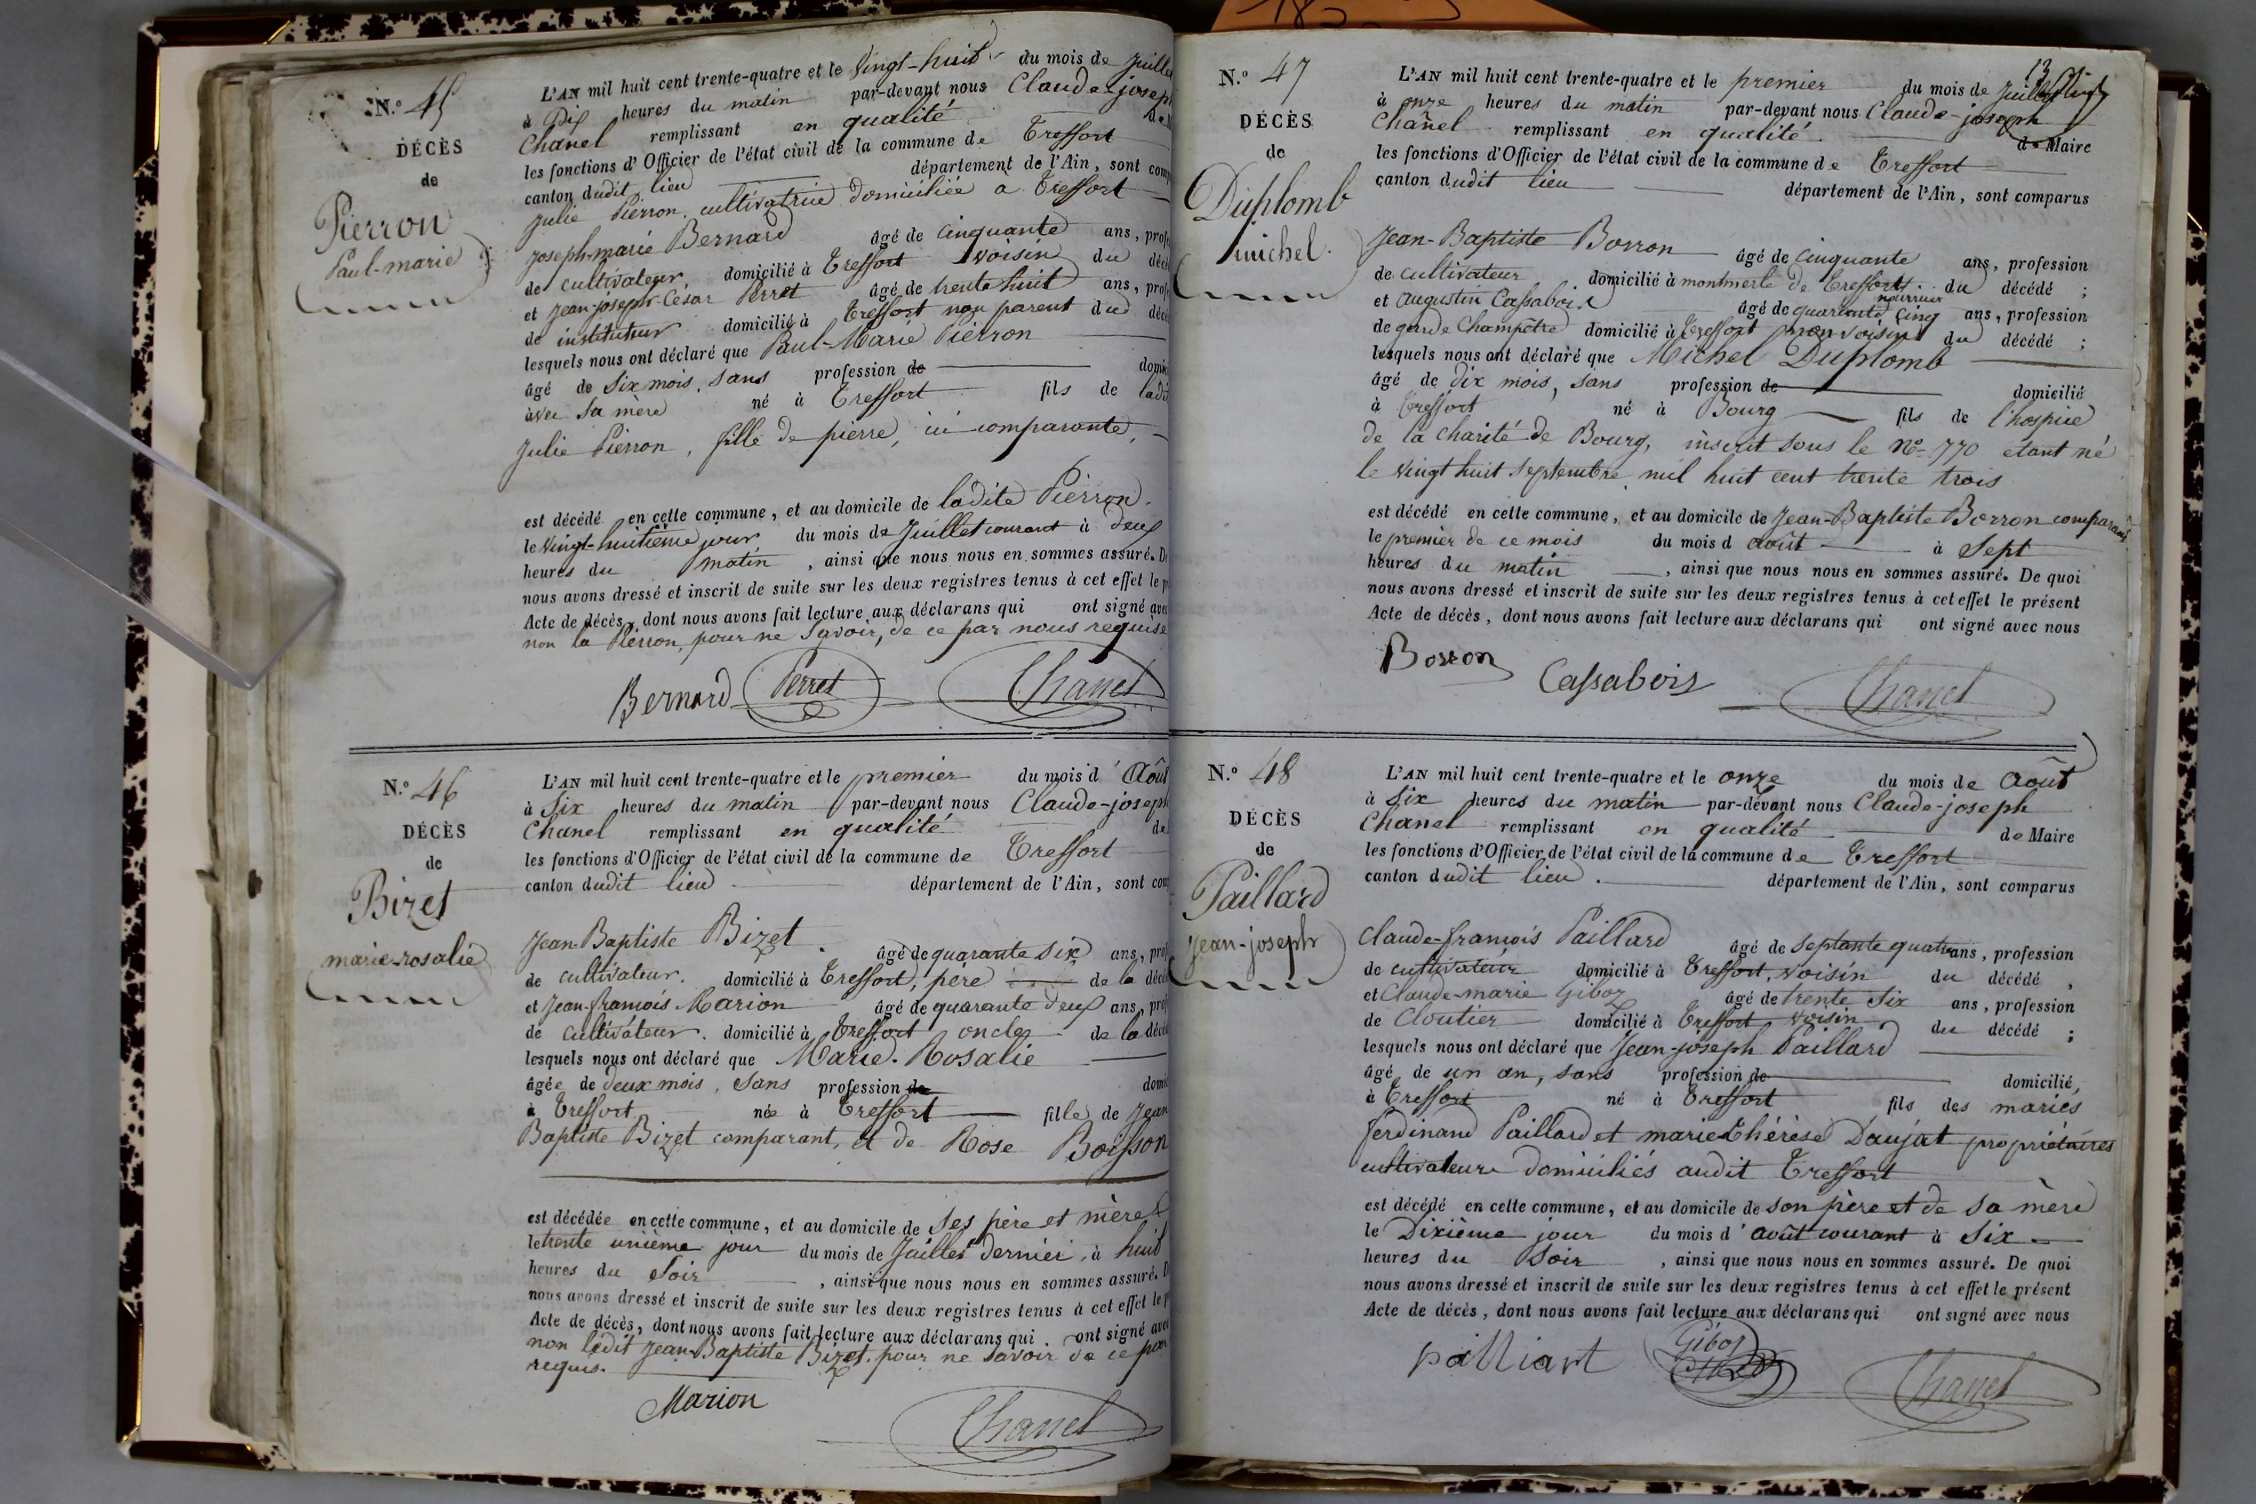 N.º 45
DÉCÈS
de
Pierron
Paul-marie
L'AN mil huit cent trente-quatre et le vingt-huit du mois de juillet
à Dix heures du matin par-devant nous Claude-joseph
Chanel remplissant en qualité de
les fonctions d'Officier de l'état civil de la commune de Treffort
canton dudit lieu département de l'Ain, sont comp
Julie Pierron, cultivatrice domiciliée à Treffort
joseph-marie Bernard âgé de cinquante ans, prof
de cultivateur domicilié à Treffort voisin du décé
et jean-joseph-César Perret âgé de trente huit ans, prof
de instituteur domicilié à Treffort non parent du décé
lesquels nous ont déclaré que Paul-Marie Pierron
âgé de six mois, sans profession de domici
avec sa mère né à Treffort fils de ladi
Julie Pierron, fille de pierre, ici comparante,
est décédé en cette commune, et au domicile de ladite Pierron.
le vingt-huitième jour du mois de Juillet courant à deux
heures du matin, ainsi que nous nous en sommes assuré. D
nous avons dressé et inscrit de suite sur les deux registres tenus à cet effet le p
Acte de décès, dont nous avons fait lecture aux déclarans qui ont signé avec
non la Pierron, pour ne savoir, de ce par nous requise
Bernard Perret Chanel
N.º 46
DÉCÈS
de
Bizet
marie-rosalie
L'AN mil huit cent trente-quatre et le premier du mois d'Août
à Six heures du matin par-devant nous Claude-joseph
Chanel remplissant en qualité de
les fonctions d'Officier de l'état civil de la commune de Treffort
canton dudit lieu département de l'Ain, sont com
Jean-Baptiste Bizet âgé de quarante six ans, prof
de cultivateur. domicilié à Treffort, père de la décé
et Jean-françois Marion âgé de quarante deux ans, prof
de cultivateur. domicilié à Treffort oncle de la décé
lesquels nous ont déclaré que Marie-Rosalie
âgée de deux mois, sans profession de domi
à Treffort née à Treffort fille de Jean
Baptiste Bizet comparant, et de Rose Boisson
est décédée en cette commune, et au domicile de ses père et mère
le trente unième jour du mois de Juillet dernier, à huit
heures du soir, ainsi que nous nous en sommes assuré. D
nous avons dressé et inscrit de suite sur les deux registres tenus à cet effet le p
Acte de décès, dont nous avons fait lecture aux déclarans qui ont signé avec
non ledit Jean-Baptiste Bizet, pour ne savoir de ce par
requis.
Marion
Chanel
N.º 47
DÉCÈS
de
Duplomb
michel.
13
L'AN mil huit cent trente-quatre et le premier du mois de juillet
à onze heures du matin par-devant nous Claude-joseph
Chanel remplissant en qualité de Maire
les fonctions d'Officier de l'état civil de la commune de Treffort
canton dudit lieu département de l'Ain, sont comparus
Jean-Baptiste Borron âgé de cinquante ans, profession
de cultivateur domicilié à montmerle de Treffort, du décédé ;
nourricier
et augustin Cassabois âgé de quarante cinq ans, profession
de garde champêtre domicilié à Treffort non voisin du décédé ;
lesquels nous ont déclaré que Michel Duplomb
âgé de dix mois, sans profession de domicilié
à Treffort né à Bourg fils de l'hospice
de la charité de Bourg, inscrit sous le Nº 770 étant né
le vingt huit septembre mil huit cent trente trois
est décédé en cette commune, et au domicile de Jean-Baptiste Borron comparant
le premier de ce mois du mois d août à sept
heures du matin, ainsi que nous nous en sommes assuré. De quoi
nous avons dressé et inscrit de suite sur les deux registres tenus à cet effet le présent
Acte de décès, dont nous avons fait lecture aux déclarans qui ont signé avec nous
Borron
Cassabois
Chanel
N.º 48
DÉCÈS
de
Paillard
jean-joseph
L'AN mil huit cent trente-quatre et le onze du mois de Août
à six heures du matin par-devant nous Claude-joseph
Chanel remplissant en qualité de Maire
les fonctions d'Officier de l'état civil de la commune de Treffort
canton dudit lieu. département de l'Ain, sont comparus
Claude-françois Paillard âgé de septante quatre ans, profession
de cultivateur domicilié à Treffort, voisin du décédé,
et Claude-marie Giboz âgé de trente six ans, profession
de Cloutier domicilié à Treffort voisin du décédé ;
lesquels nous ont déclaré que Jean-joseph Paillard
âgé de un an, sans profession de domicilié,
à Treffort né à Treffort fils des mariés
ferdinand Paillard et marie thérèse Daujat propriétaires
cultivateurs domiciliés audit Treffort
est décédé en cette commune, et au domicile de son père et de sa mère
le Dixième jour du mois d'août courant à six
heures du soir, ainsi que nous nous en sommes assuré. De quoi
nous avons dressé et inscrit de suite sur les deux registres tenus à cet effet le présent
Acte de décès, dont nous avons fait lecture aux déclarans qui ont signé avec nous
pailliart
Giboz
Chanel